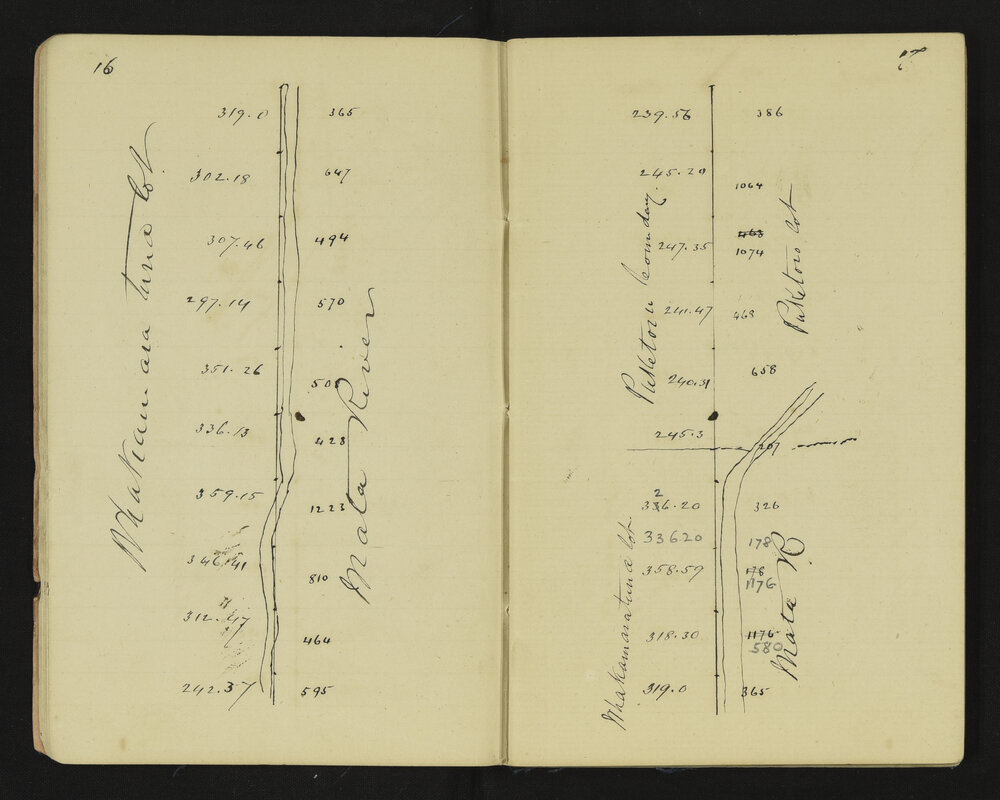 16
319.0 365
302.18 647
307.46 494
297.14 570
351.26 503
336.13 428
359.15 1223
346.41 810
312.47 464
242.37 595
Whakamara tuna lot.
Mata River
17
239.56 386
245.20 1064
463
247.35 1074
241.47 468
240.31 658
245.3 207
2
336.20 326
336.20 178
358.59 178
1176
318.30 1176
580
319.0 365
Puketoru boundary.
Puketoru lot
Whakamaratuna lot.
Mata R